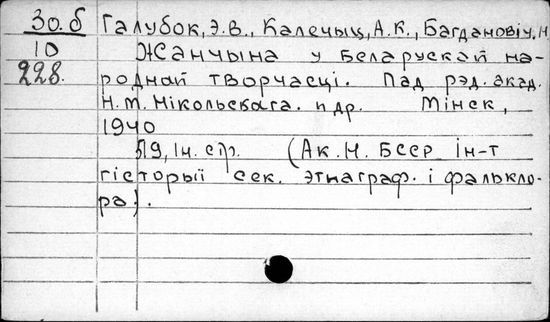 30.б Галубок, Э.В., Калечыц, А.К., Багдановіч, Н
10 Жанчына у беларускай на-
228. роднай творчасці. Пад рэд. акад.
Н.М. Нікольскага. п др. Мінск,
1940
519, Ін. стр. (Ак. Н. БССР Ін-т
гісторый сек. этнаграф. і фалькло-
ра).